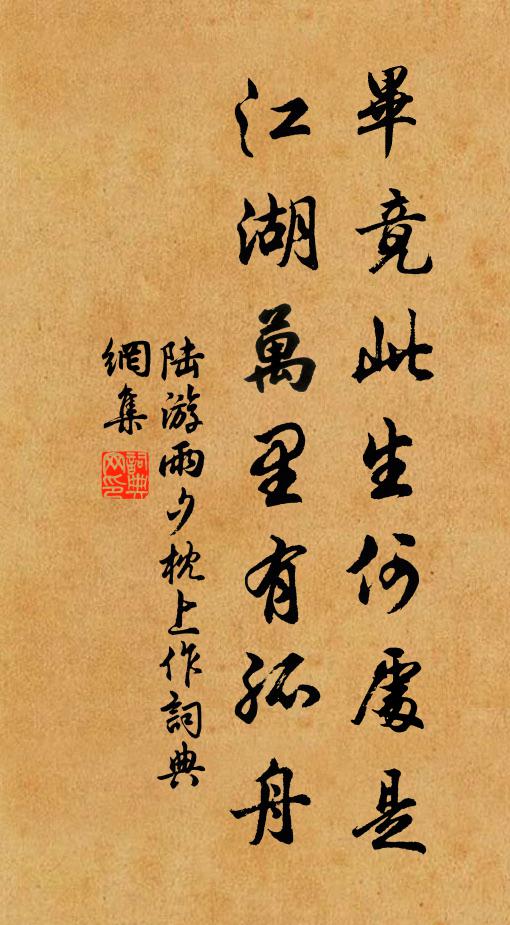 畢竟此生何處是
江湖萬里有孤舟
陸游雨夕枕上作詞典
網集
詞典
网印